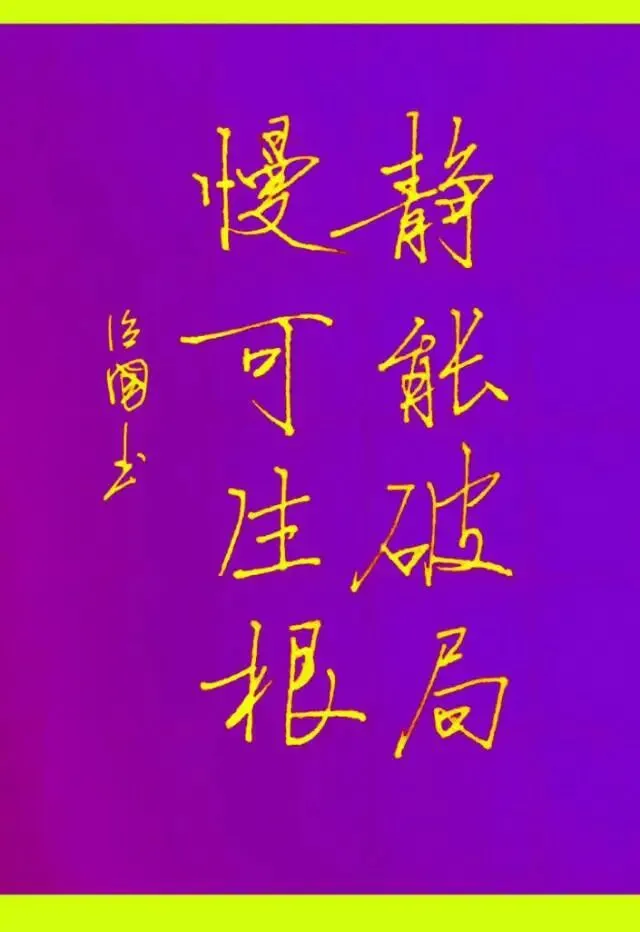 静能破局
慢可生根
治国书